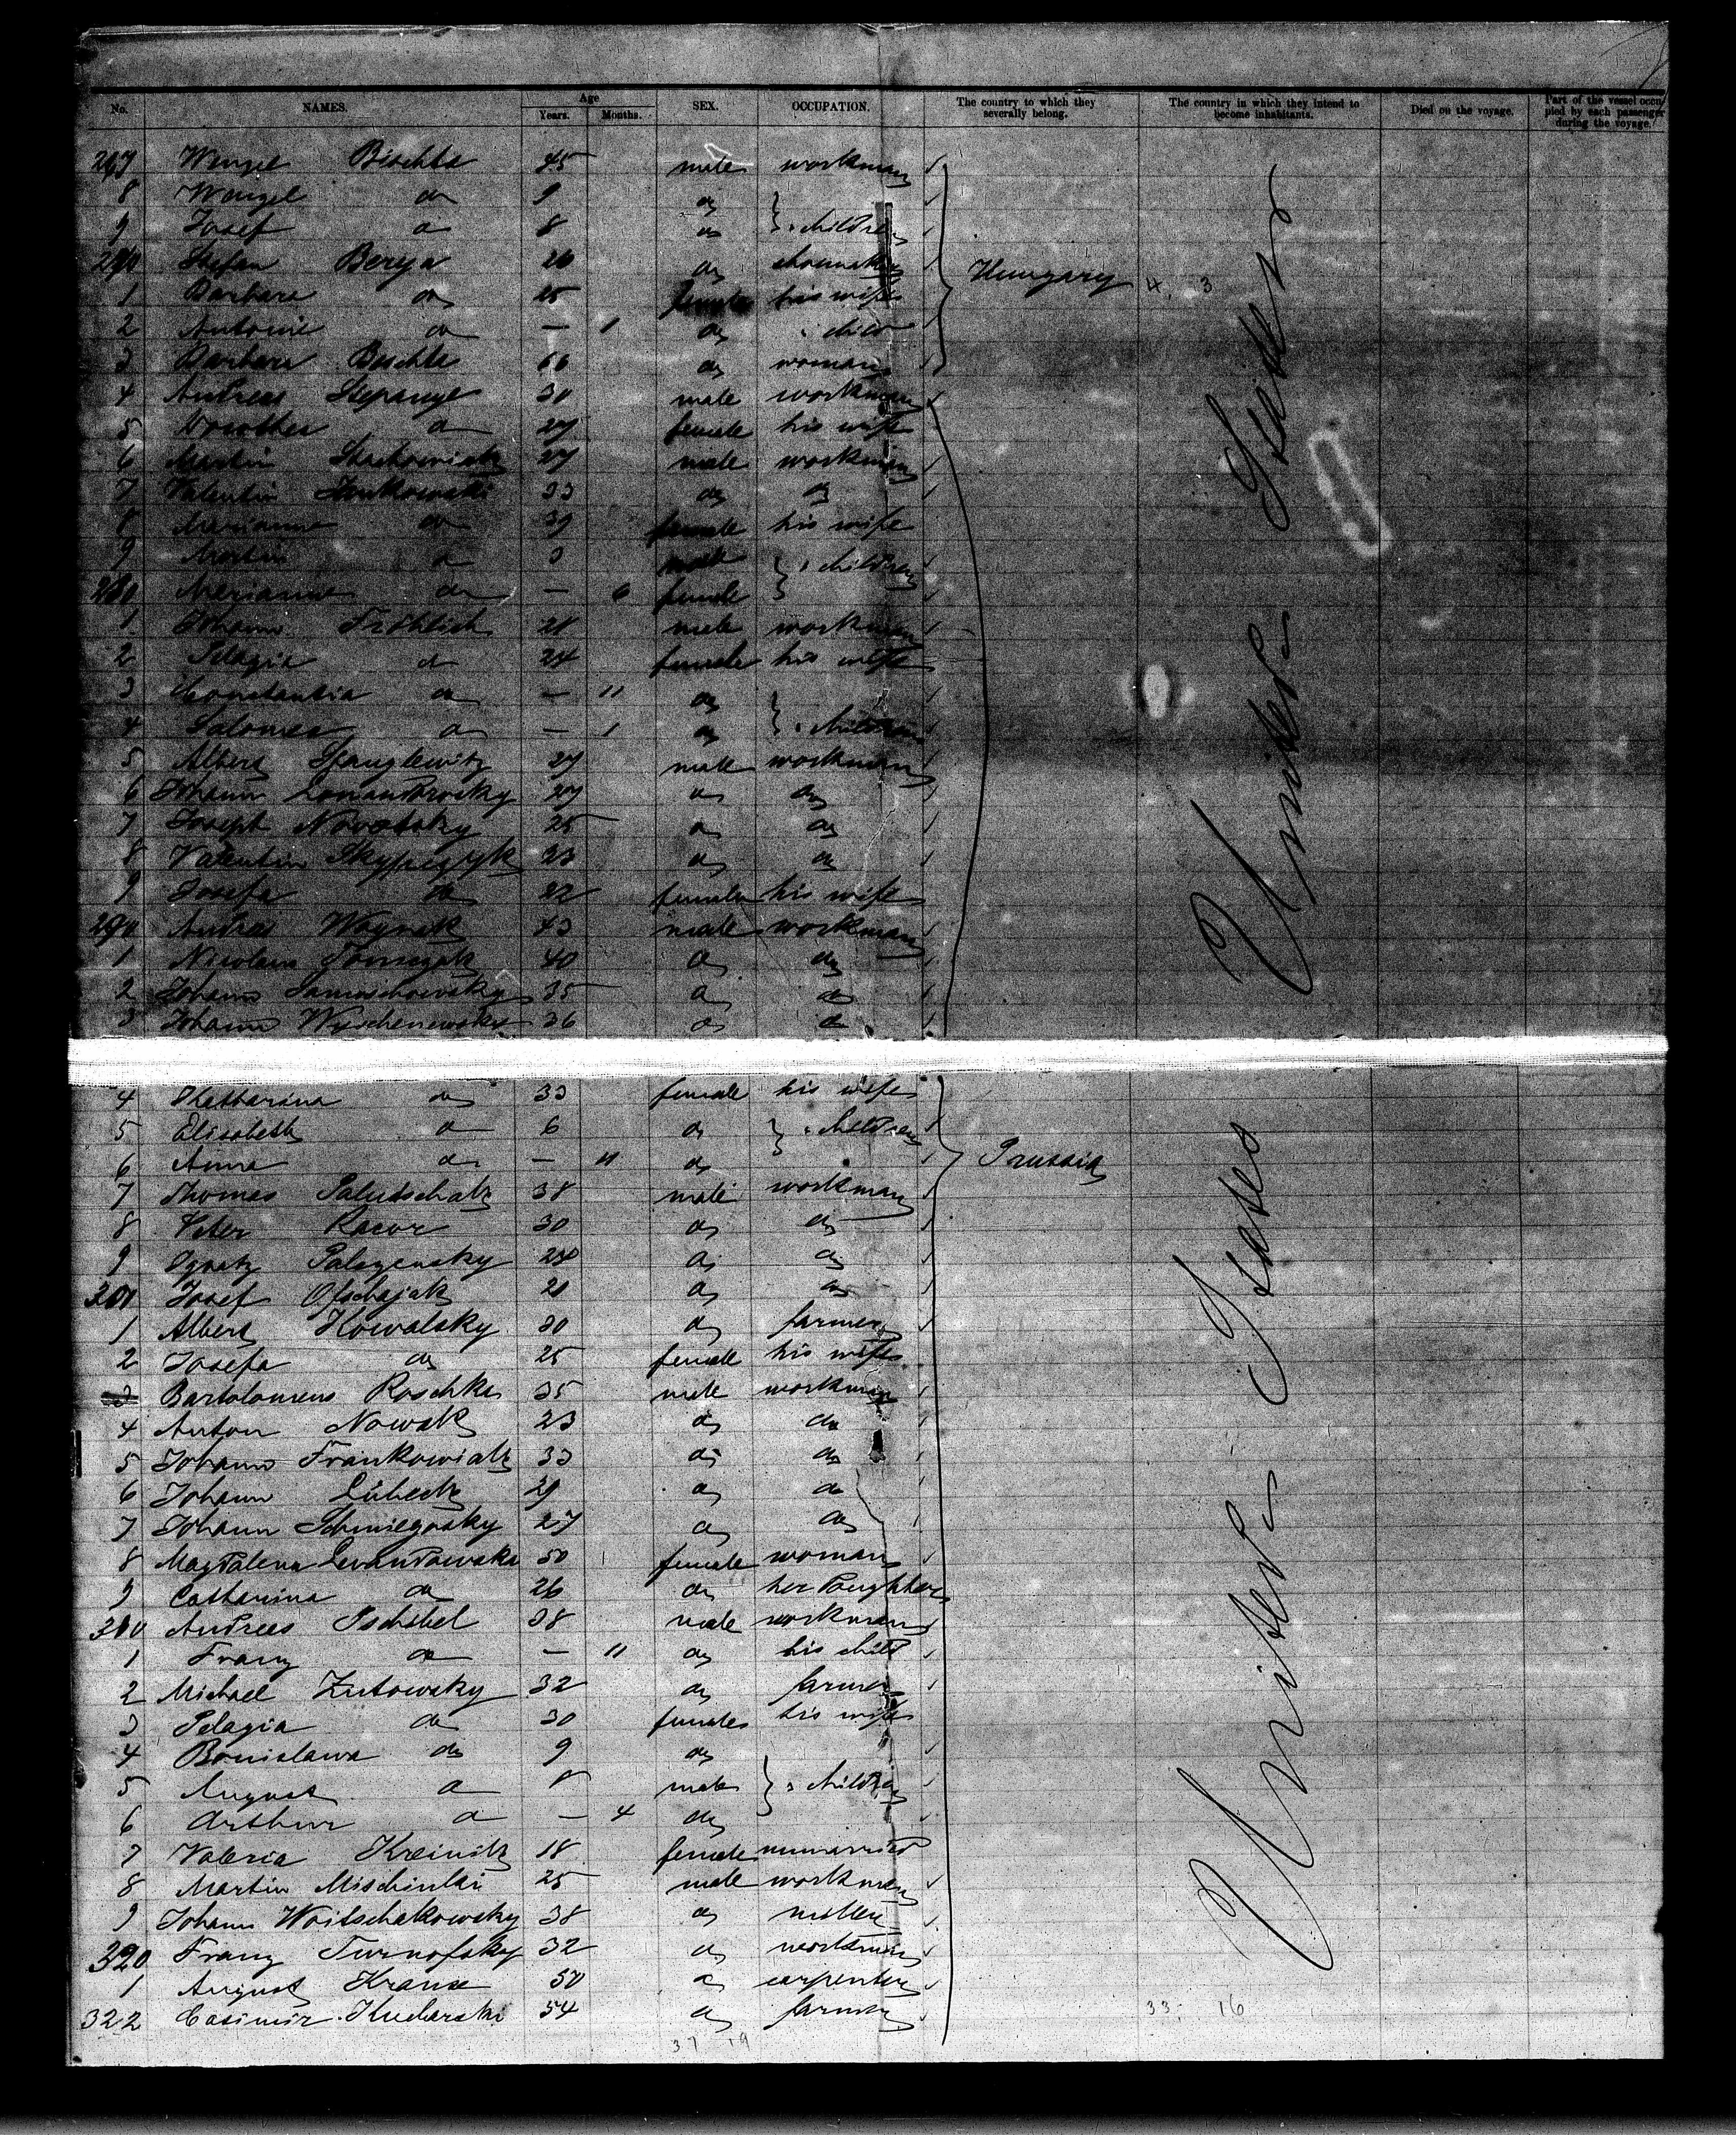 No. NAMES. Age Years. Months. SEX. OCCUPATION. The country to which they severally belong. The country in which they intend to become inhabitants. Died on the voyage. Part of the vessel occupied by each passenger during the voyage.
267 Wenzel Bischta 45 male workman
8 Wenzel do 9 do
9 Josef do 8 do " children
270 Stefan Berya 26 do shoemaker Hungary 4. 3
1 Barbara do 25 female his wife
2 Antonie do — 1 do " child
3 Barbara Bischta 66 do woman
4 Andreas Stepanye 30 male workman
5 Dorothea do 27 female his wife
6 Martin Stachowiak 27 male workman
7 Valentin 33 do do
8 Marianna do 39 female his wife
9 Martin do 3 male " children
280 Marianna do — 6 female
1 Johann Fröhlich 28 male workman
2 Pelagia do 24 female his wife
3 Constantia do — 11 do
4 Salomea do — 1 do " children
5 Albert Spanglewitz 27 male workman
6 Johann 27 do do
7 Joseph Novotsky 25 do do
8 Valentin 23 do do
9 Josefa do 22 female his wife
290 Andreas Woynak 43 male workman
1 Nicolaus Tomczak 40 do do
2 Johann Samoschowsky 35 do do
3 Johann Wyschenewsky 36 do do
4 Katharina do 33 female his wife
5 Elisabeth do 6 do " children
6 Anna do — 11 do Prussia
7 Thomas Palutschak 38 male workman
8 Peter Racor 30 do do
9 Ignatz Palozensky do do
301 Josef do do
1 Albert Kowalsky 30 do farmer
2 Josefa do 25 female his wife
3 Bartolomeus Roschka 35 male workman
4 Anton Nowak 23 do do
5 Johann Frankowiak 33 do do
6 Johann Lübeck 29 do do
7 Johann Schmiegosky 27 do do
8 Magdalena Levandowska 50 female woman
9 Catharina do 26 do her daughter
310 Andreas Pschebel 38 male workman
1 Franz do — 11 do his child
2 Michael Zutowsky 32 do farmer
3 Pelagia do 30 female his wife
4 Bronislawa do 9 do
5 August do 8 male " children
6 Arthur do — 4 do
7 Valeria Kreinitz 18 female unmarried
8 Martin Mischinski 25 male workman
9 Johann Woitschakowsky 38 do miller
320 Franz Turnofsky 32 do workman
1 August Krause 50 do carpenter
322 Casimir Kucharski 54 do farmer 33. 16
37 19
United States
United States